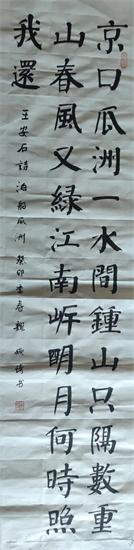 京口瓜洲一水間鍾山只隔數重
山春風又綠江南岸明月何時照
我還
王安石詩泊船瓜洲癸卯孟春